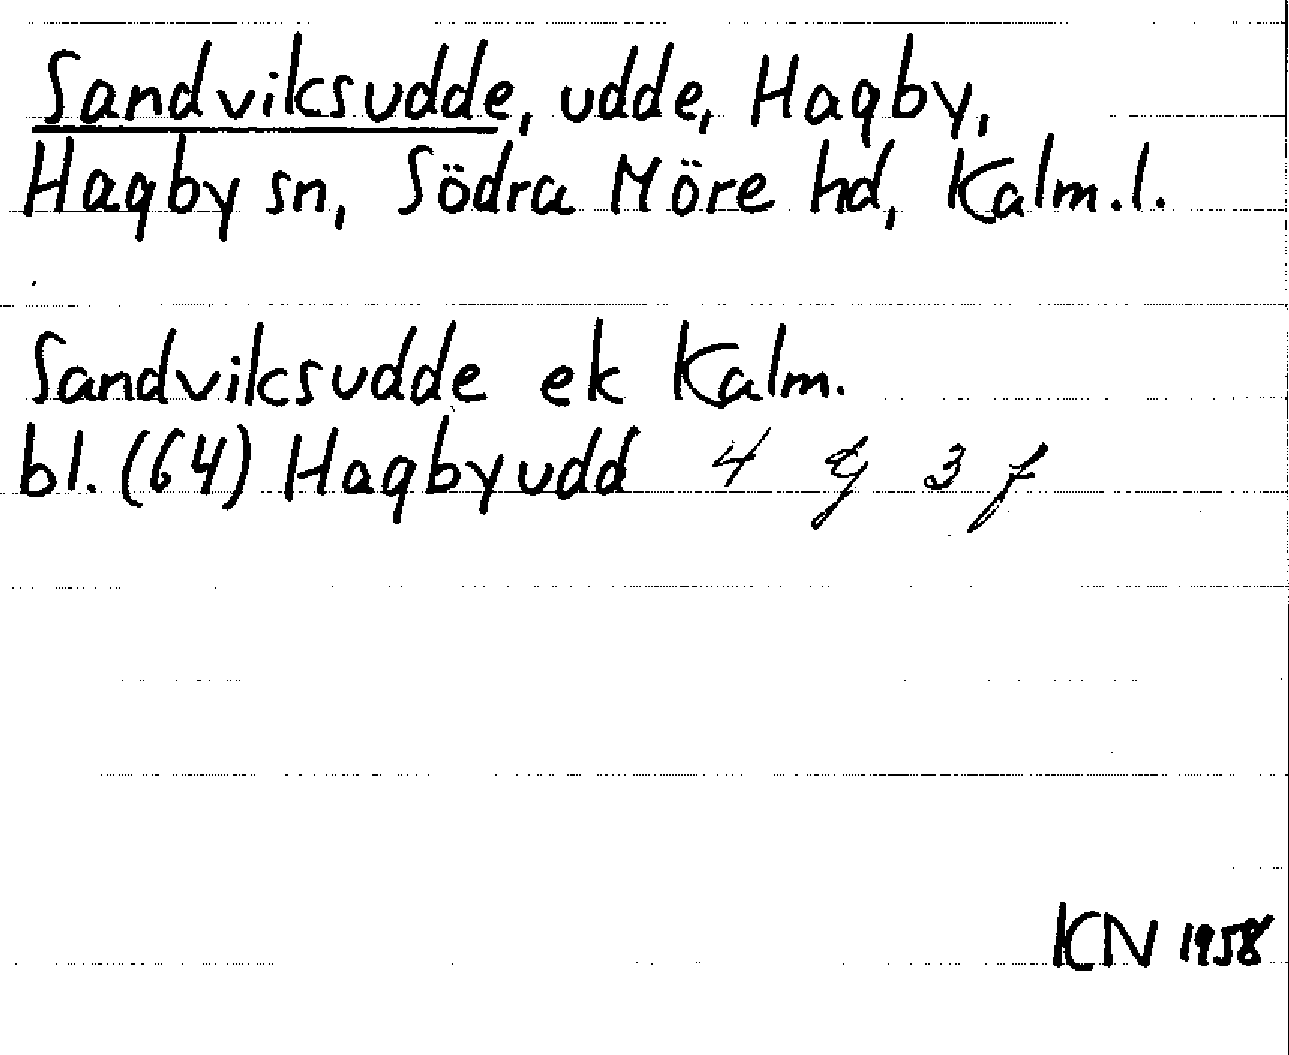 Sandviksudde, udde, Hagby,
Hagby sn, Södra Möre hd, Kalm.l.
Sandviksudde ek Kalm.
bl. (64) Hagbyudd 4 g 3 f
KN 1958